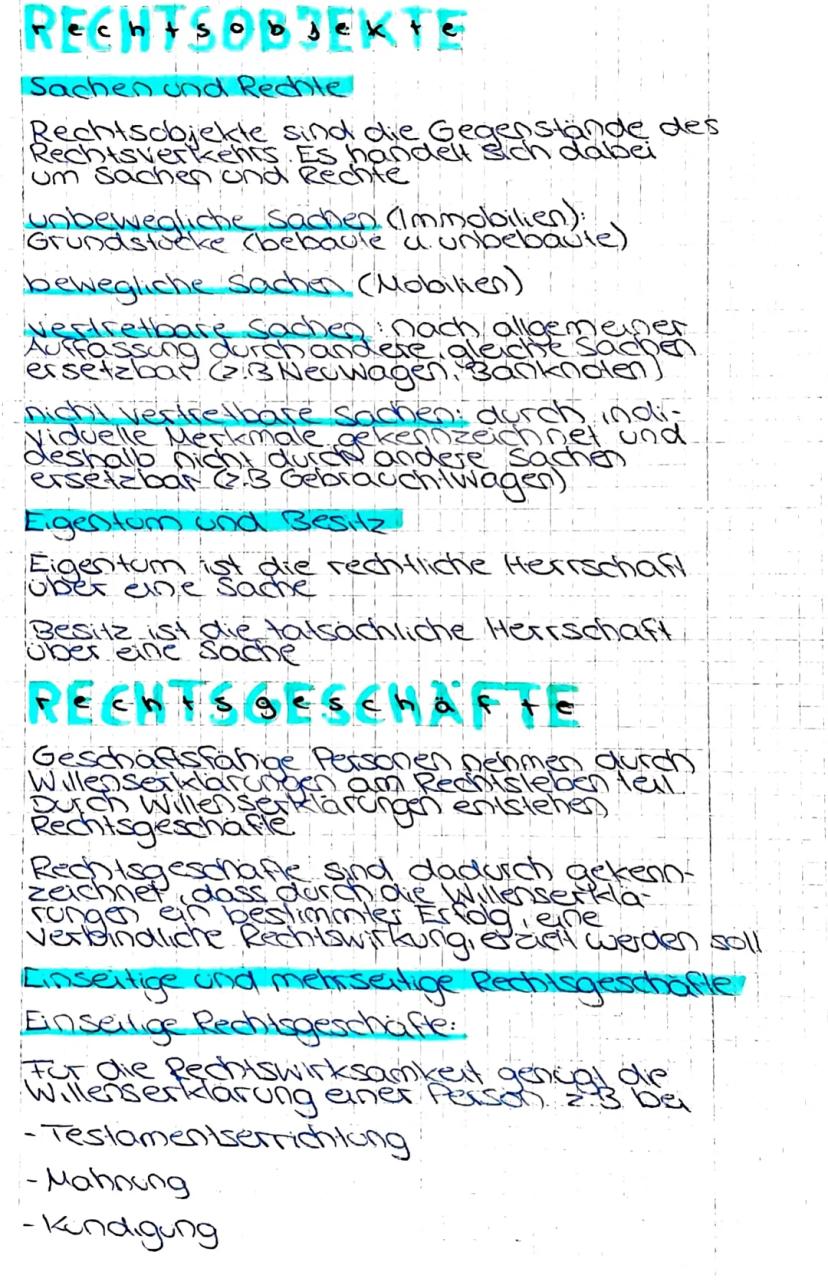 RECHTSOBJEKTE
Sachen und Rechte
Rechtsobjekte sind die Gegenstände des
Rechtsverkehrs. Es handelt sich dabei
um Sachen und Rechte
unbewegliche Sachen (Immobilien):
Grundstücke (bebaute u. unbebaute)
bewegliche Sachen (Mobilien)
vertretbare Sachen: nach allgemeiner
Auffassung durch andere, gleiche Sachen
ersetzbar (z.B Neuwagen, Banknoten)
nicht vertretbare Sachen: durch indi-
viduelle Merkmale gekennzeichnet und
deshalb nicht durch andere Sachen
ersetzbar (z.B Gebrauchtwagen)
Eigentum und Besitz
Eigentum ist die rechtliche Herrschaft
über eine Sache
Besitz ist die tatsächliche Herrschaft
über eine Sache
RECHTSGESCHÄFTE
Geschäftsfähige Personen nehmen durch
Willenserklärungen am Rechtsleben teil.
Durch Willenserklärungen entstehen
Rechtsgeschäfte.
Rechtsgeschäfte sind dadurch gekenn-
zeichnet, dass durch die Willenserklä-
rungen ein bestimmter Erfolg, eine
verbindliche Rechtswirkung, erzielt werden soll
Einseitige und mehrseitige Rechtsgeschäfte
Einseitige Rechtsgeschäfte:
Für die Rechtswirksamkeit genügt die
Willenserklärung einer Person. z.B bei
- Testamentserrichtung
- Mahnung
- Kündigung